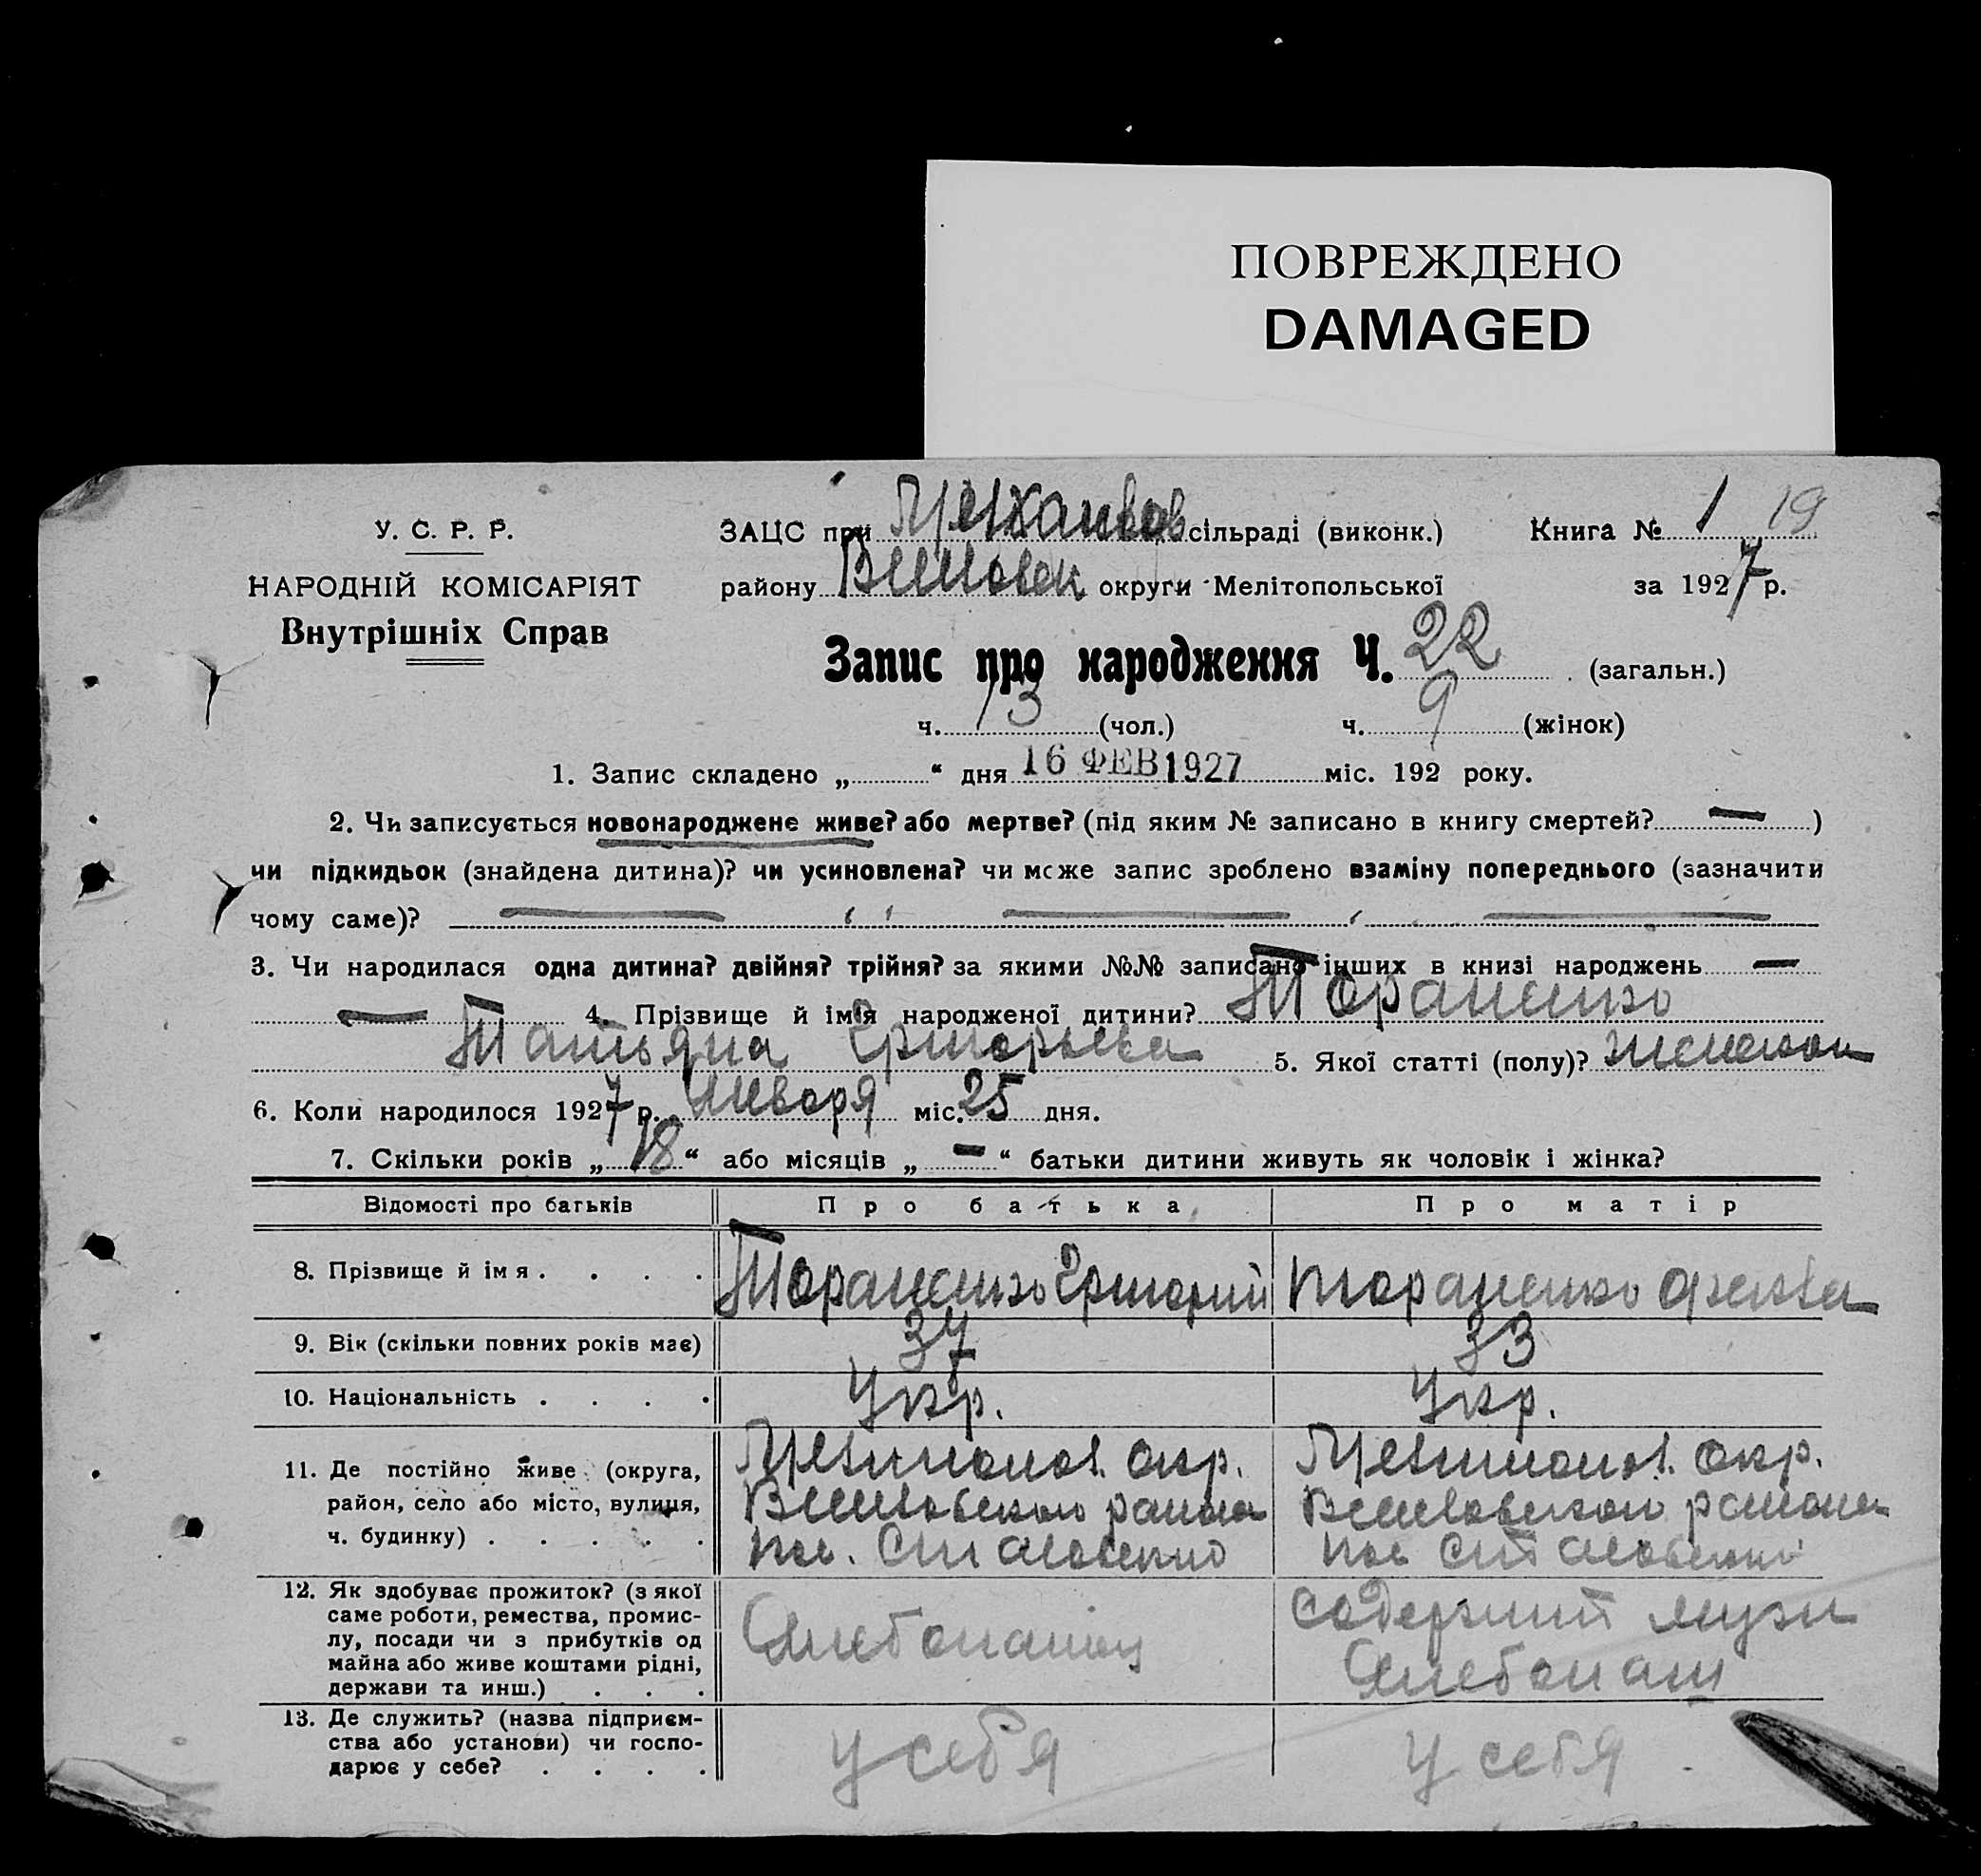 ПОВРЕЖДЕНО
DAMAGED
У. С. Р. Р.
НАРОДНІЙ КОМІСАРІЯТ
Внутрішніх Справ
ЗАЦС при сільраді (виконк.)
району округи Мелітопольської
Книга № 1 19
за 1927 р.
Запис про народження Ч. 22 (загальн.)
ч. 13 (чол.) ч. 9 (жінок)
1. Запис складено „ “ дня 16 ФЕВ 1927 міс. 192 року.
2. Чи записується новонароджене живе? або мертве? (під яким № записано в книгу смертей? — )
чи підкидьок (знайдена дитина)? чи усиновлена? чи може запис зроблено взаміну попереднього (зазначити
чому саме)?
3. Чи народилася одна дитина? двійня? трійня? за якими №№ записано інших в книзі народжень —
— 4. Прізвище й імія народженої дитини? Тараненко
Татьяна Григорьева 5. Якої статті (полу)? женской
6. Коли народилося 1927 р. Января міс. 25 дня.
7. Скільки років „ 18 “ або місяців „ — “ батьки дитини живуть як чоловік і жінка?
Відомості про батьків Про батька Про матір
8. Прізвище й імя . . . . Тараненко Григорий Тараненко
9. Вік (скільки повних років має) 37 33
10. Національність . . . . Укр. Укр.
11. Де постійно живе (округа, окр. окр.
район, село або місто, вулиця, района района
ч. будинку) . . . . .
12. Як здобуває прожиток? (з якої содержит муж
саме роботи, ремества, промис-
лу, посади чи з прибутків од
майна або живе коштами рідні,
держави та инш.) . . .
13. Де служить? (назва підприєм-
ства або установи) чи госпо- у себя у себя
дарює у себе? . . . .